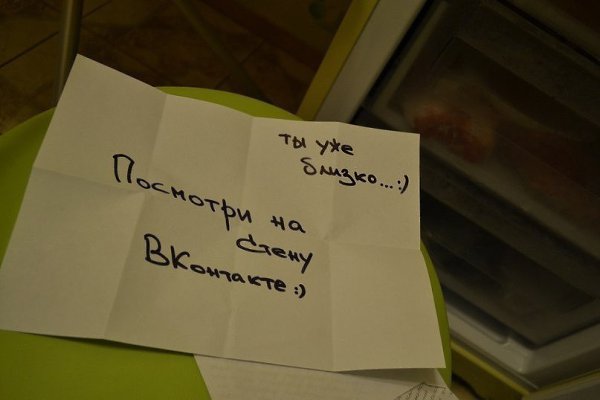 ты уже
близко...:)
Посмотри на
стену
ВКонтакте:)